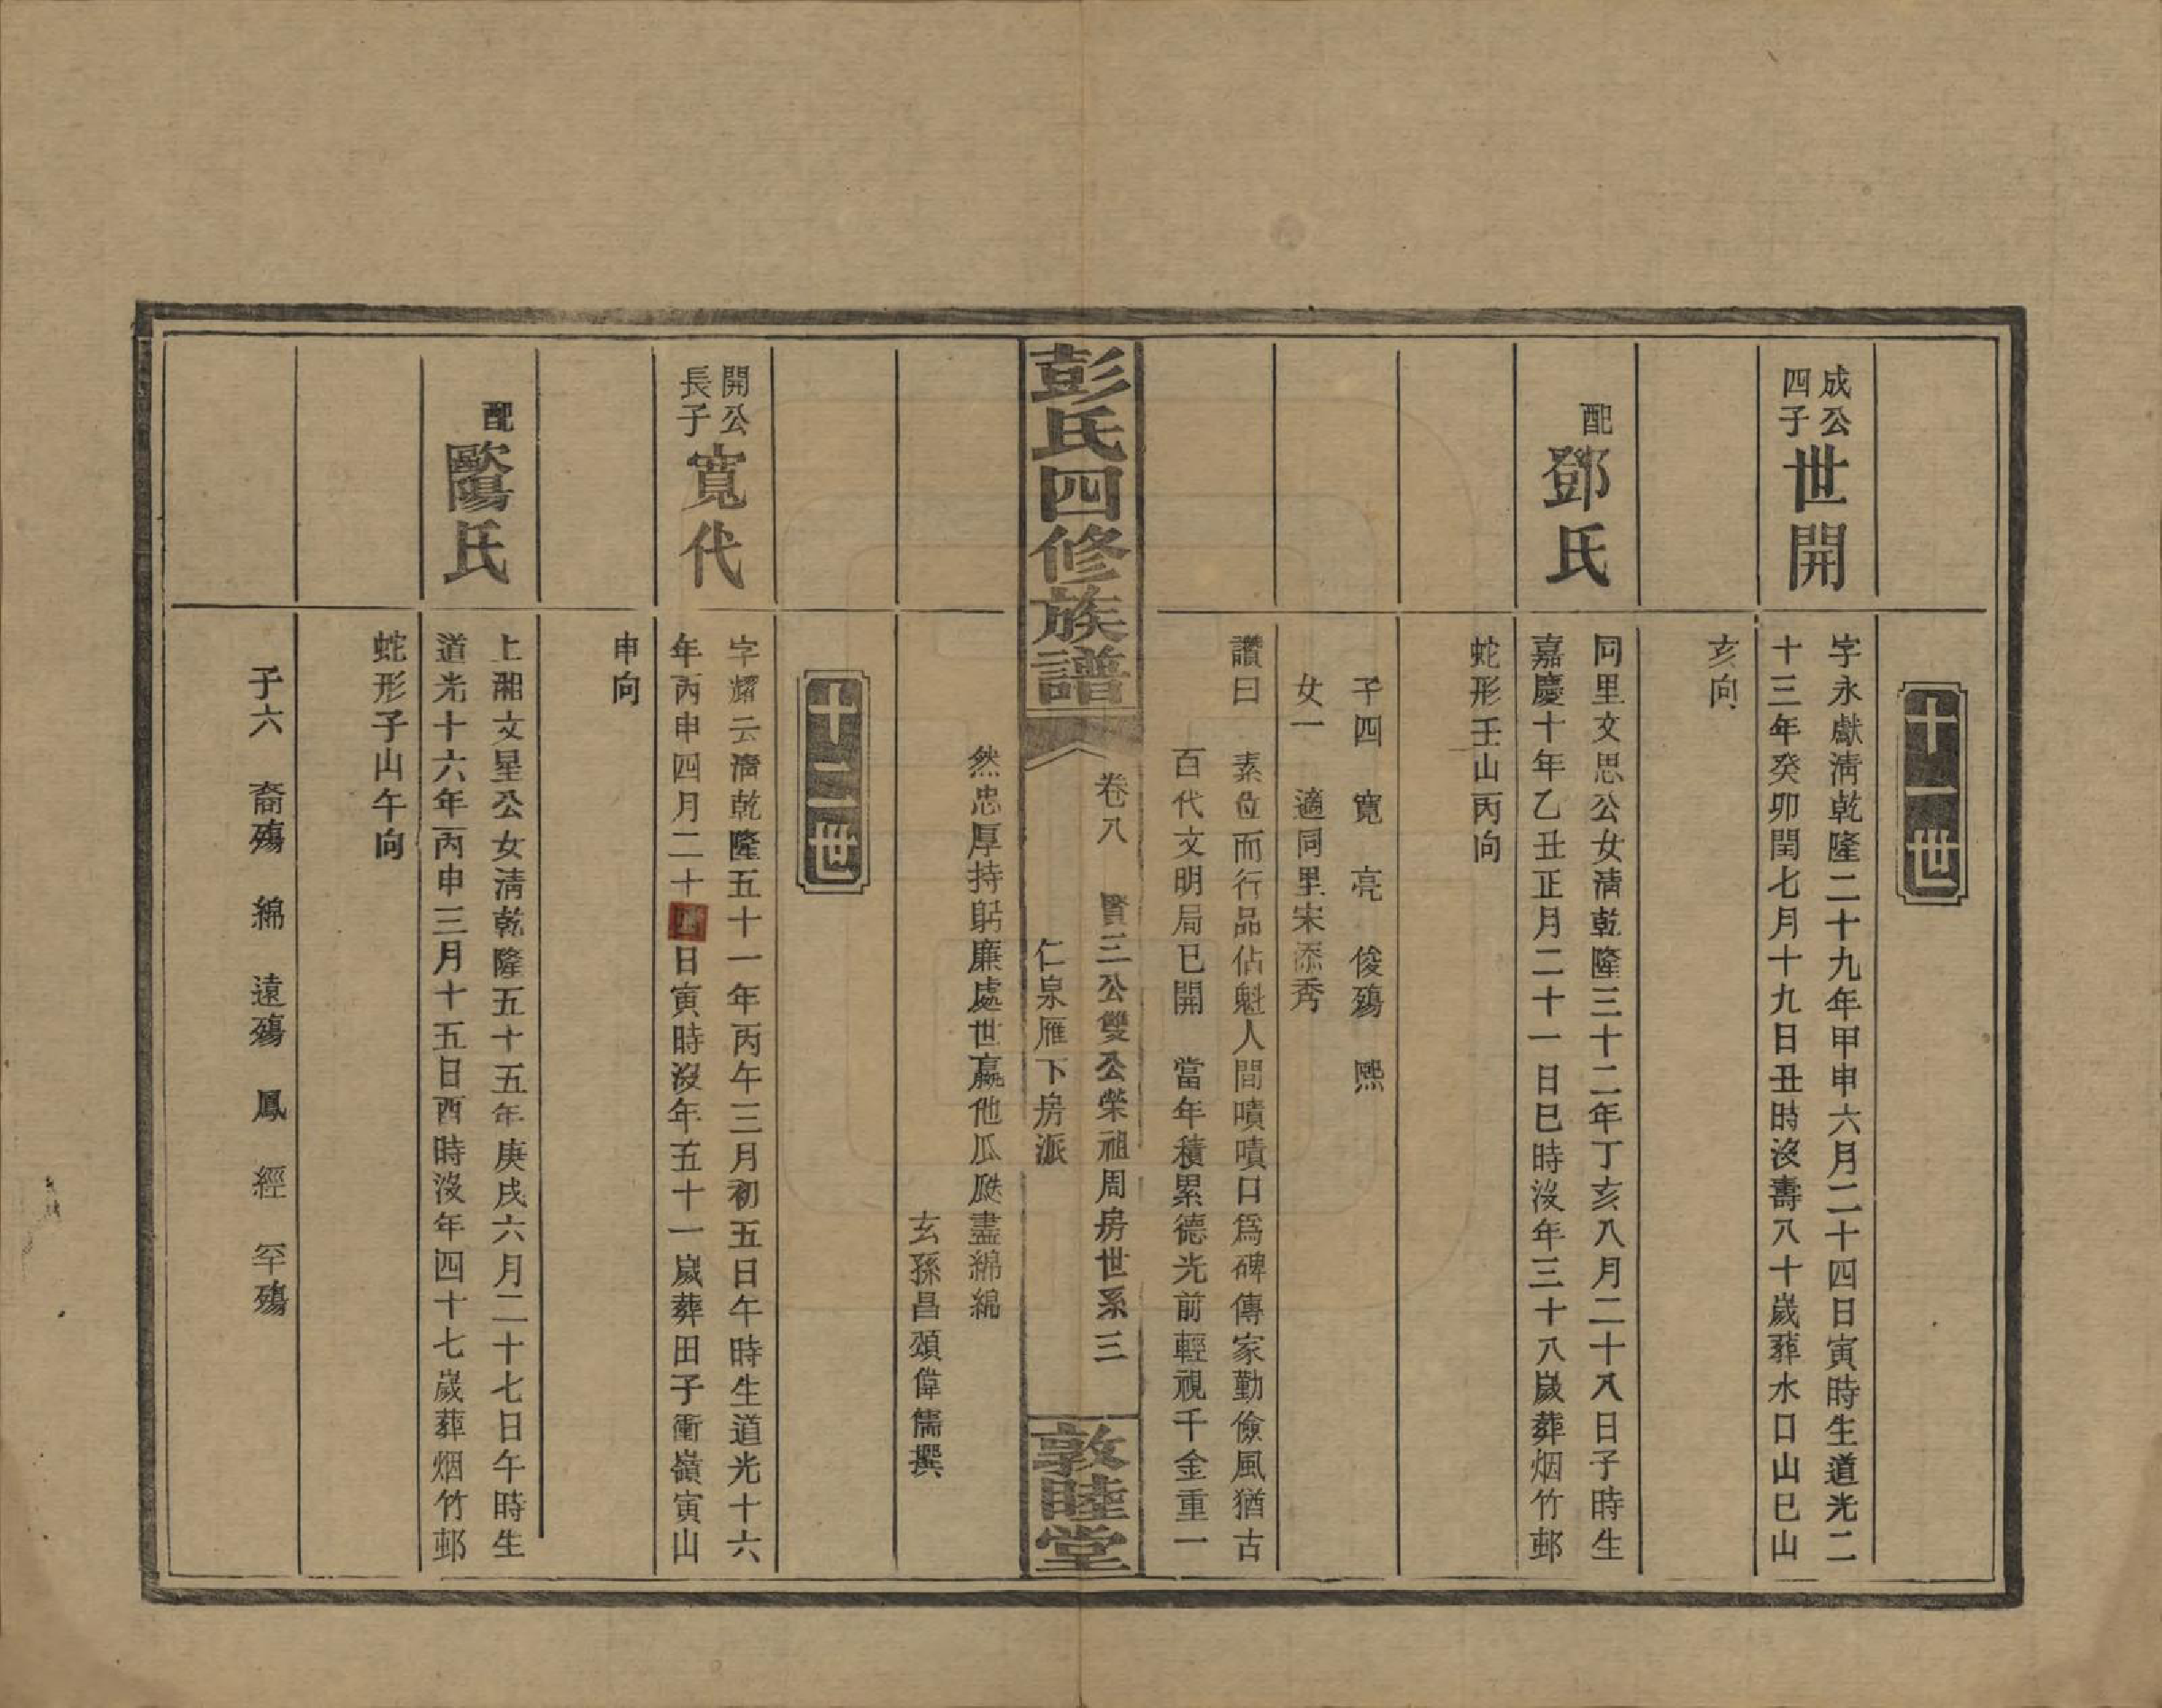 十一世
成公
四子
世開
字永獻淸乾隆二十九年甲申六月二十四日寅時生道光二
十三年癸卯閏七月十九日丑時沒壽八十歲葬水口山巳山
亥向
配
鄧氏
同里文思公女淸乾隆三十二年丁亥八月二十八日子時生
嘉慶十年乙丑正月二十一日巳時沒年三十八歲葬烟竹邨
蛇形壬山丙向
子四 寬 亮 俊殤 熙
女一 適同里宋添秀
讚曰 素位而行品佔魁人間嘖嘖口爲碑傳家勤儉風猶古
百代文明局已開 當年積累德光前輕視千金重一
彭氏四修族譜
卷八 賢三公雙公榮祖周房世系三
仁泉雁下房派
敦睦堂
然忠厚持躬廉處世贏他瓜瓞盡綿綿
玄孫昌頌偉儒撰
十二世
開公
長子
寬代
字耀云淸乾隆五十一年丙午三月初五日午時生道光十六
年丙申四月二十日寅時沒年五十一歲葬田子衝嶺寅山
申向
配
歐陽氏
上湘文星公女淸乾隆五十五年庚戌六月二十七日午時生
道光十六年丙申三月十五日酉時沒年四十七歲葬烟竹邨
蛇形子山午向
子六 裔殤 綿 遠殤 鳳 經 罕殤